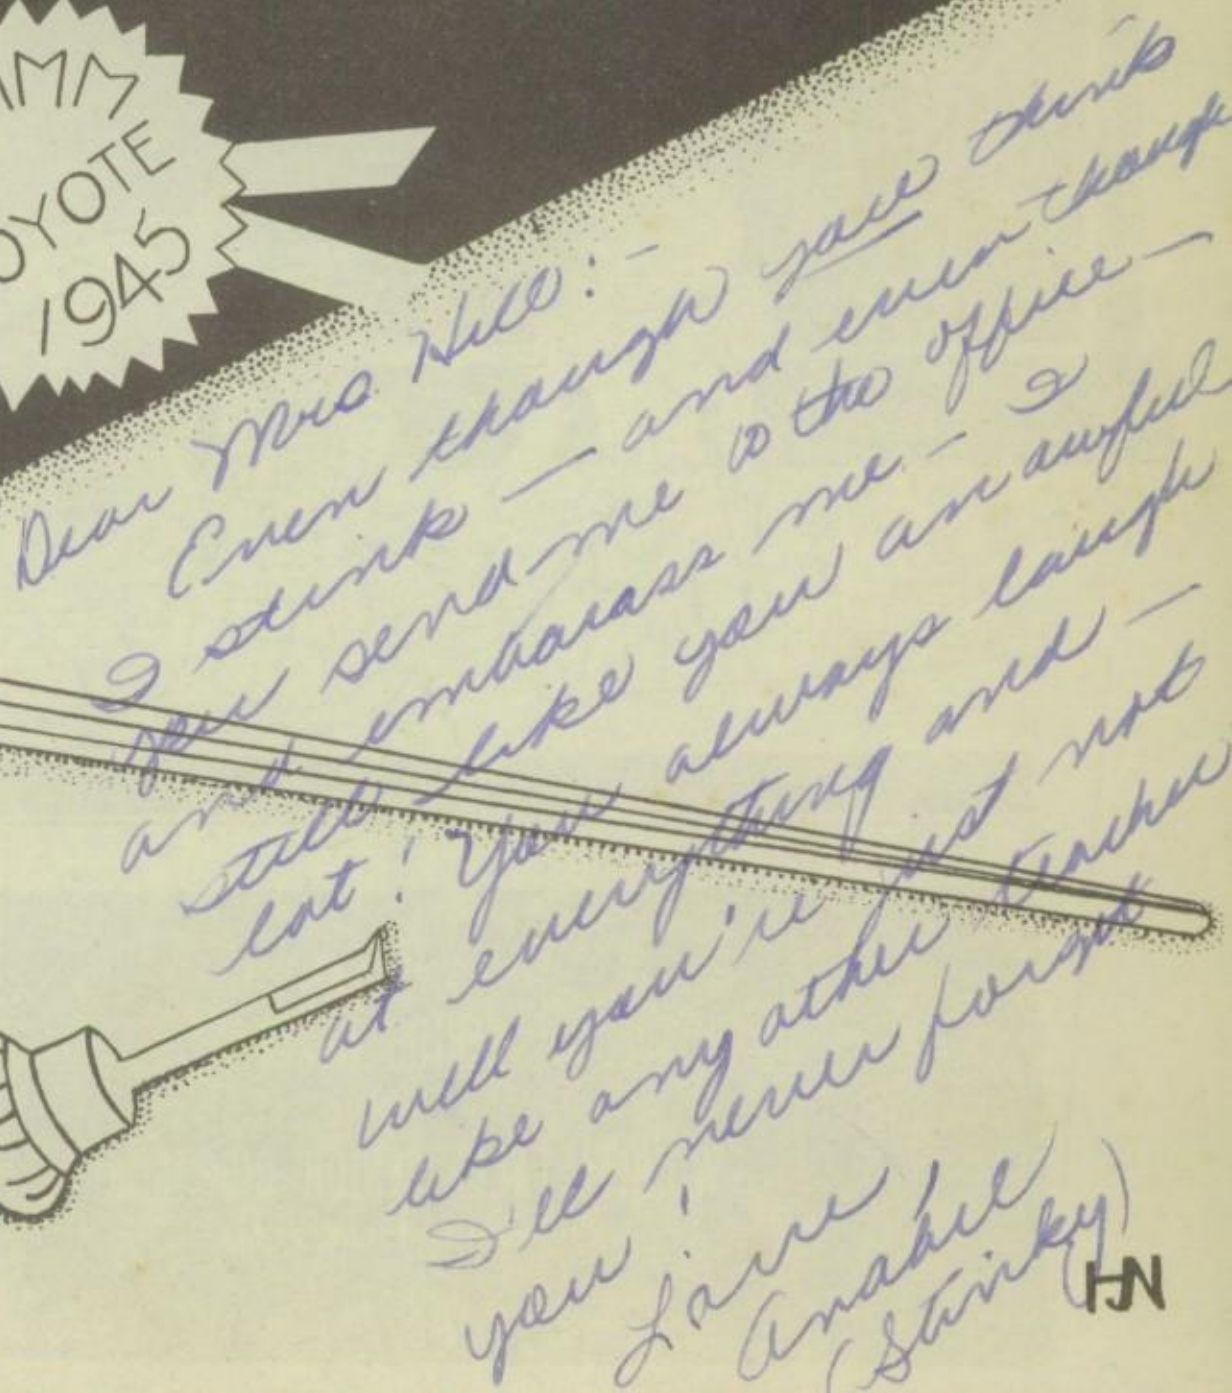 MM
OYOTE
1945
Dear Mrs. Hill:-
Even though you think
I stink — and even though
you send me to the office —
and embarass me - I
still like you an awful
lot! You always laugh
at everything and —
well you're just not
like any other teacher
I'll never forget
you!
Love,
Anabel
(Stinky)
HJN